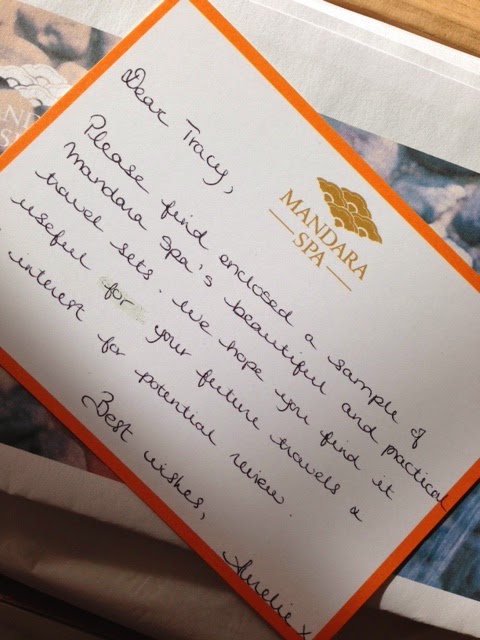 Dear Tracy,
MANDARA
SPA
Please find enclosed a sample of
Mandara Spa's beautiful and practical
travel sets. We hope you find it
useful for your future travels &
interest for potential review.
Best wishes,
Amelie x